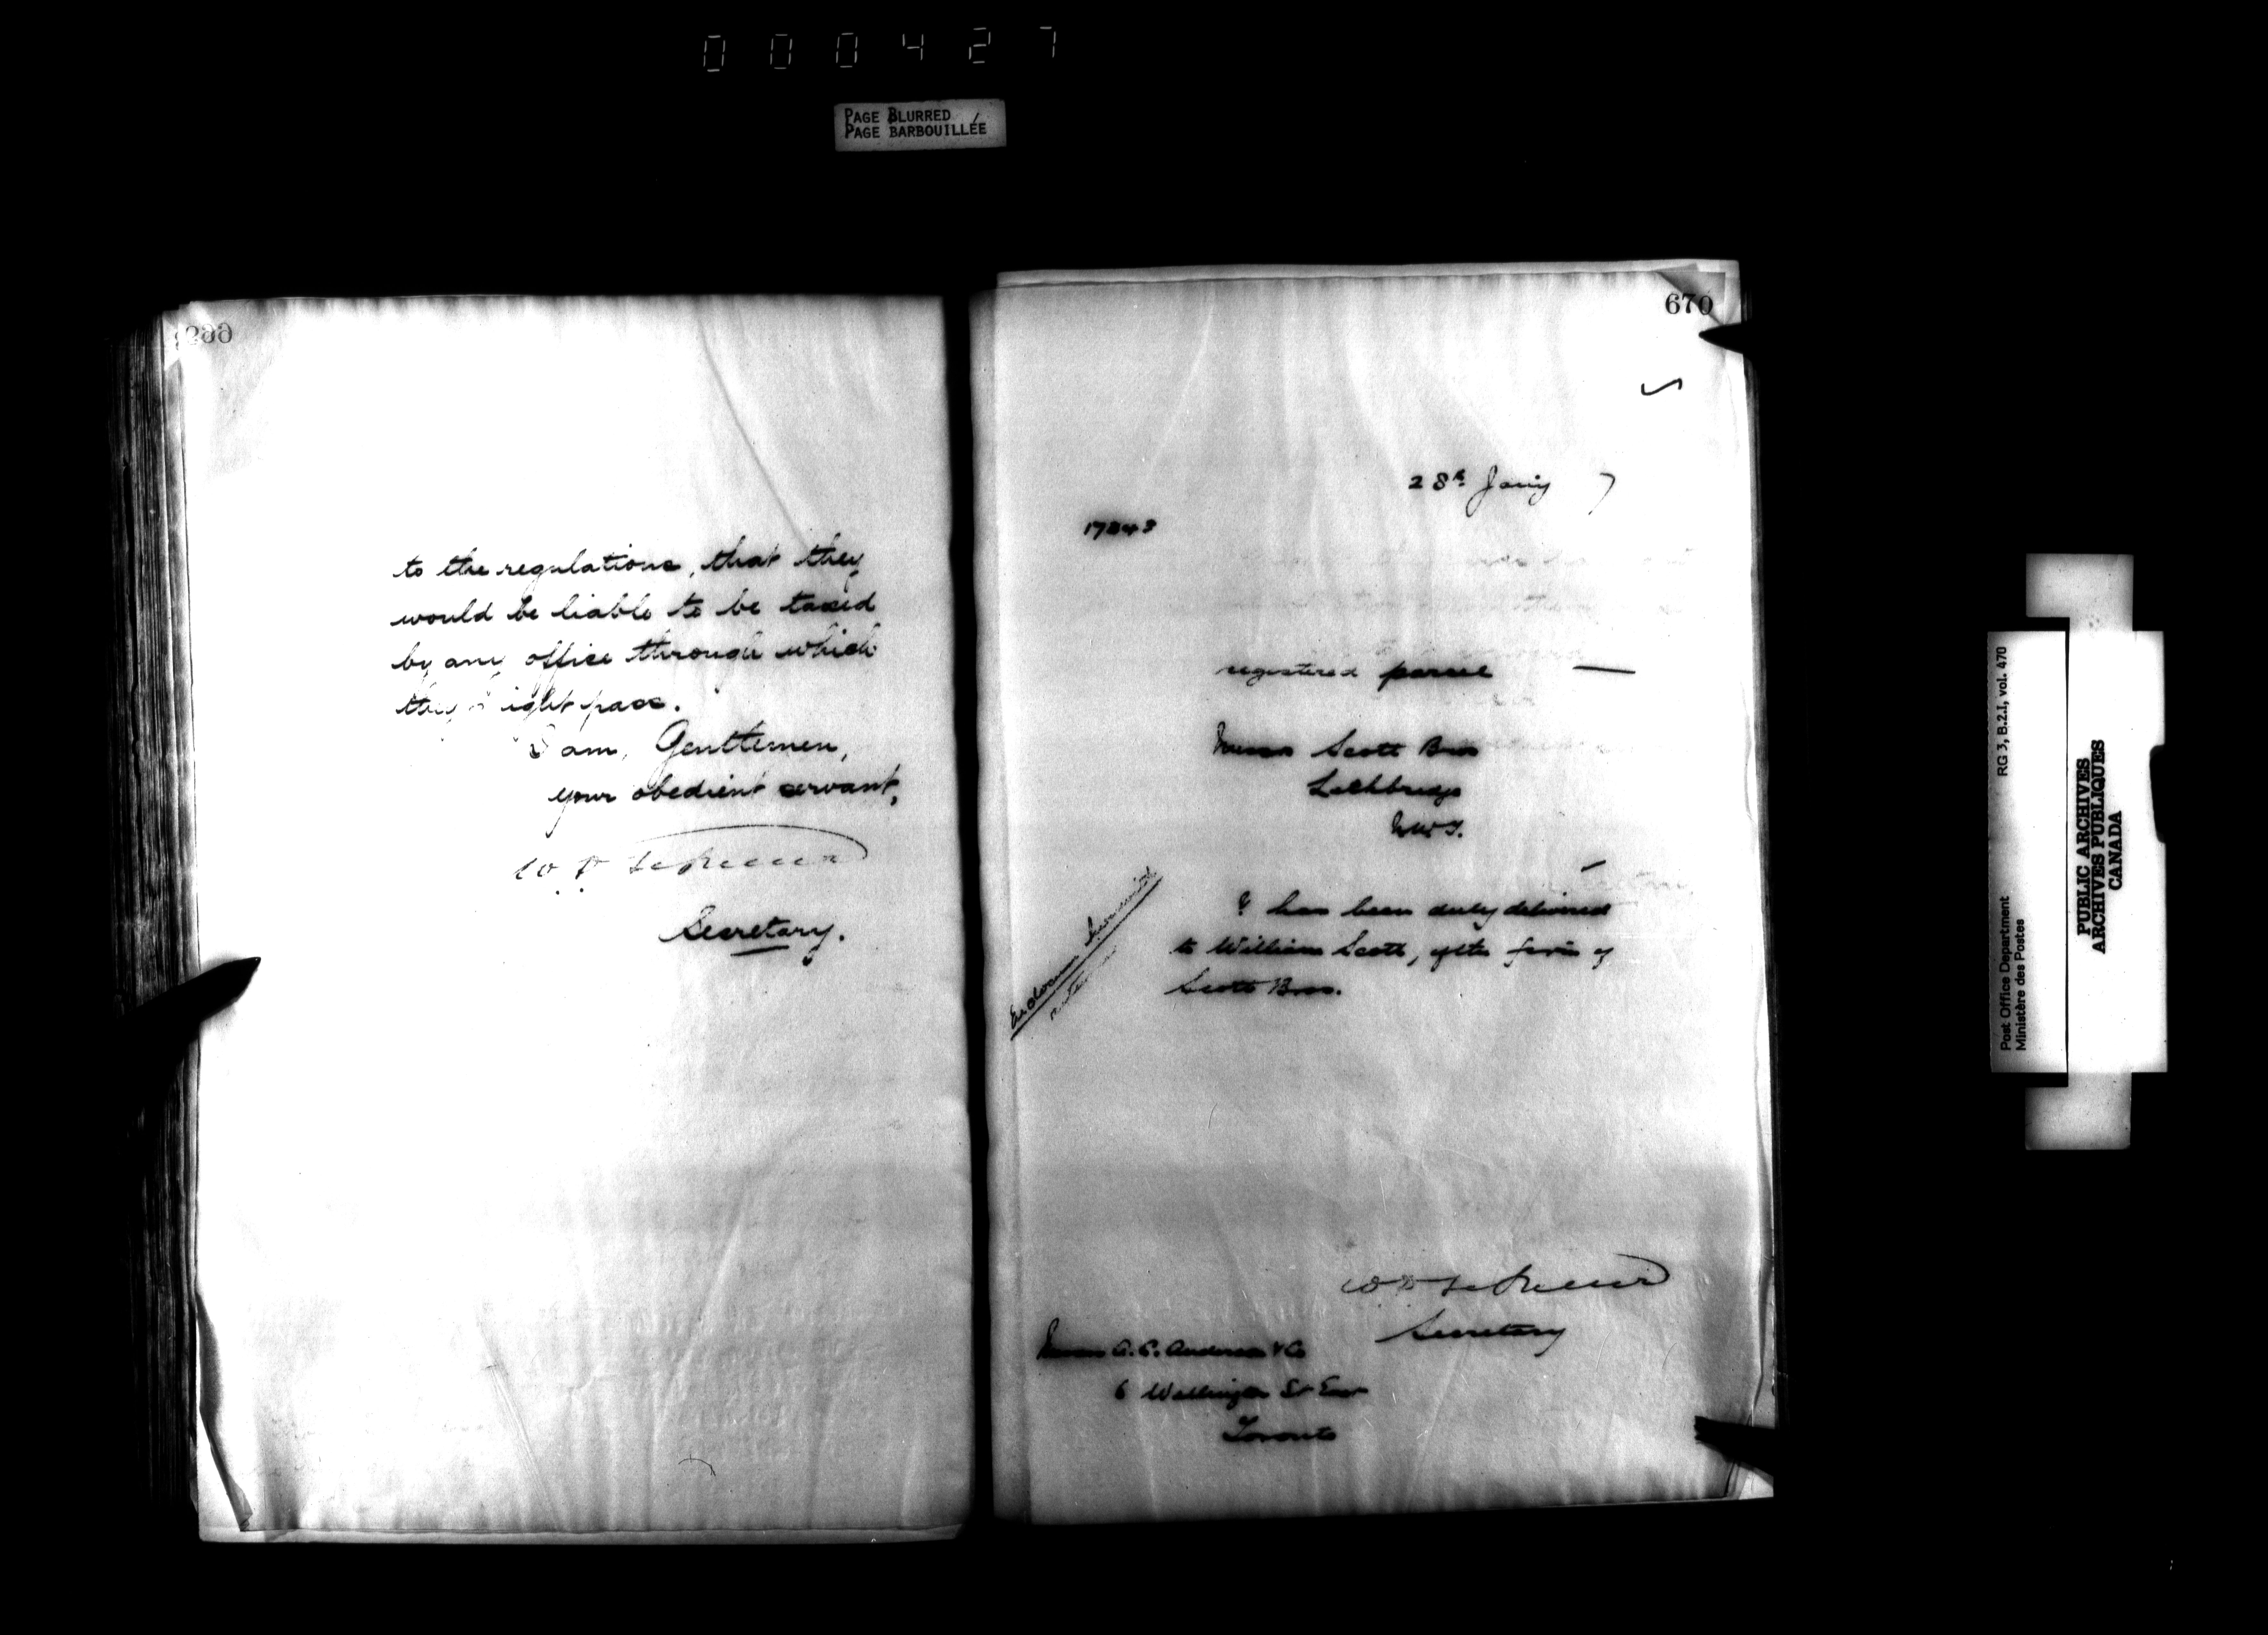 000427
PAGE BLURRED
PAGE BARBOUILLÉE
to the regulations, that they
would be liable to be taxed
by any office through which
they might pass.
I am, Gentlemen,
your obedient servant,
Secretary.
670
28th Jany 7
registered parcel —
Messrs Scott Bros
Lethbridge
N.W.T.
& has been duly delivered
to William Scott, of the firm of
Scott Bros.
Secretary
Messrs A. C. Anderson & Co
6 Wellington St East
Toronto
RG 3, B.2.I, vol. 470
Post Office Department
Ministère des Postes
PUBLIC ARCHIVES
ARCHIVES PUBLIQUES
CANADA